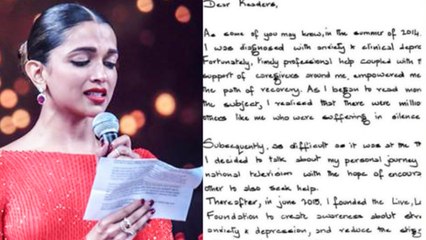 Dear Readers,
As some of you may know, in the summer of 2014
I was diagnosed with anxiety & clinical
Fortunately, timely professional help coupled with
support of caregivers around me, empowered me
the path of recovery. As I began to read more
the subject, I realised that there were
others like me who were suffering in silence
Subsequently, as difficult as it was at the
I decided to talk about my personal journey
national television with the hope of
other to also seek help.
Thereafter, in june 2015, I founded the Live,
Foundation to create awareness about
anxiety & depression, and reduce the